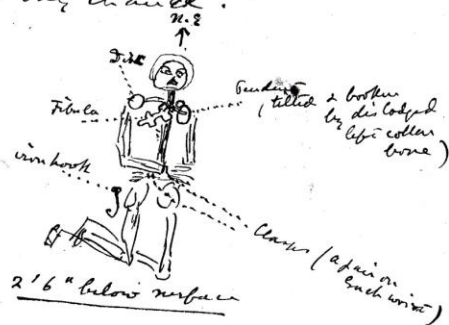 N.E
Disk
Pendant
(tilted & broken
by dislodged
left collar
bone)
Fibula
iron hook
Clasps (a pair on
each wrist)
2' 6" below surface